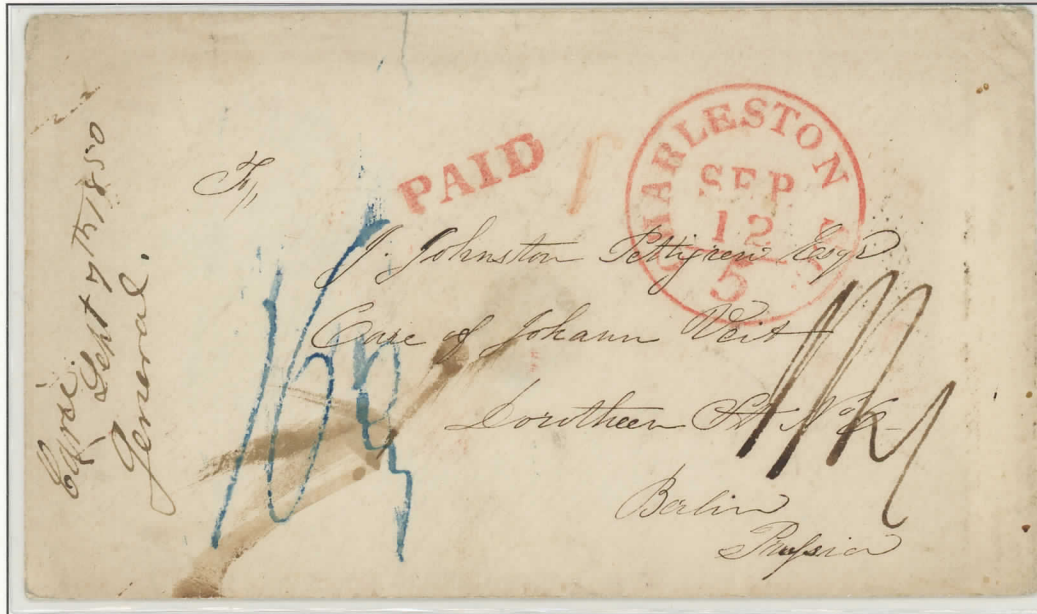 Sept 7th 1850
General.
PAID
CHARLESTON S.C.
SEP
12
5
To/
J. Johnston Pettigrew Esqr
Care of Johann Veit
Dorotheen St No
Berlin
Prussia